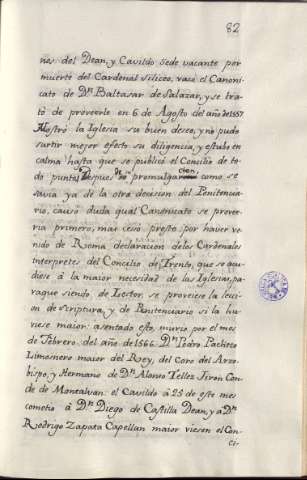 82
nes del Dean, y Cavildo Sede vacante por
muerte del Cardenal Siliceo, vacó el Canoni-
cato de Dn. Baltasar de Salazar, y se tra-
tó de proveerle en 6 de Agosto del año de 1557
Mostró la Iglesia su buen deseo, y no pudo
surtir mejor efecto su diligencia, y estubo en
calma hasta que se publicó el Concilio de to-
do punto. Despues de promulgacion, como se
savia ya de la otra decision del Penitencia-
rio, causó duda qual Canonicato se provee-
ria primero, mas cesó presto por haver ve-
nido de Roma declaracion de los Cardenales
interpretes del Concilio de Trento, que se acu-
diese á la maior necesidad de las Iglesias, pa-
ra que siendo de Lector, se proveiese la lecci-
on de scriptura, y de Penitenciario si la hu-
viese maior: asentado esto, murió por el mes
de Febrero del año de 1566. Dn. Pedro Pacheco
Limosnero maior del Rey, del Coro del Arzo-
bispo, y Hermano de Dn. Alonso Tellez Jiron Con-
de de Montalvan: el Cavildo á 23 de este mes
cometio á Dn. Diego de Castilla Dean, y á Dn.
Rodrigo Zapata Capellan maior viesen el Con-
ci-